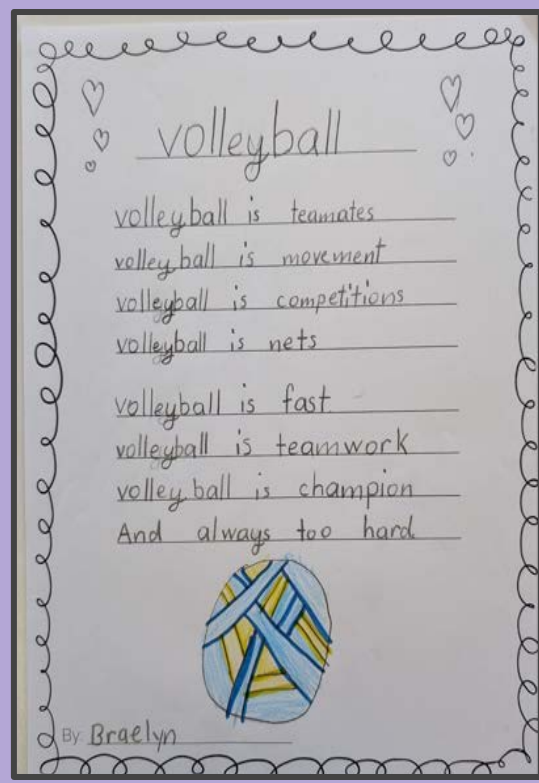 volleyball
volleyball is teamates
volleyball is movement
volleyball is competitions
volleyball is nets
volleyball is fast
volleyball is teamwork
volleyball is champion
And always too hard
By: Braelyn